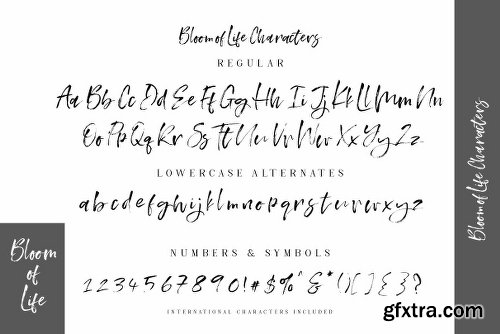 Bloom of Life Characters
REGULAR
Aa Bb Cc Dd Ee Ff Gg Hh Ii Jj Kk Ll Mm Nn
Oo Pp Qq Rr Ss Tt Uu Vv Ww Xx Yy Zz
LOWERCASE ALTERNATES
a b c d e f g h i j k l m n o p q r s t u v w x y z
NUMBERS & SYMBOLS
1 2 3 4 5 6 7 8 9 0 ! # $ % ^ & * ( ) [ ] { } ?
INTERNATIONAL CHARACTERS INCLUDED
Bloom
of
Life
Bloom of Life Characters
gfxtra.com